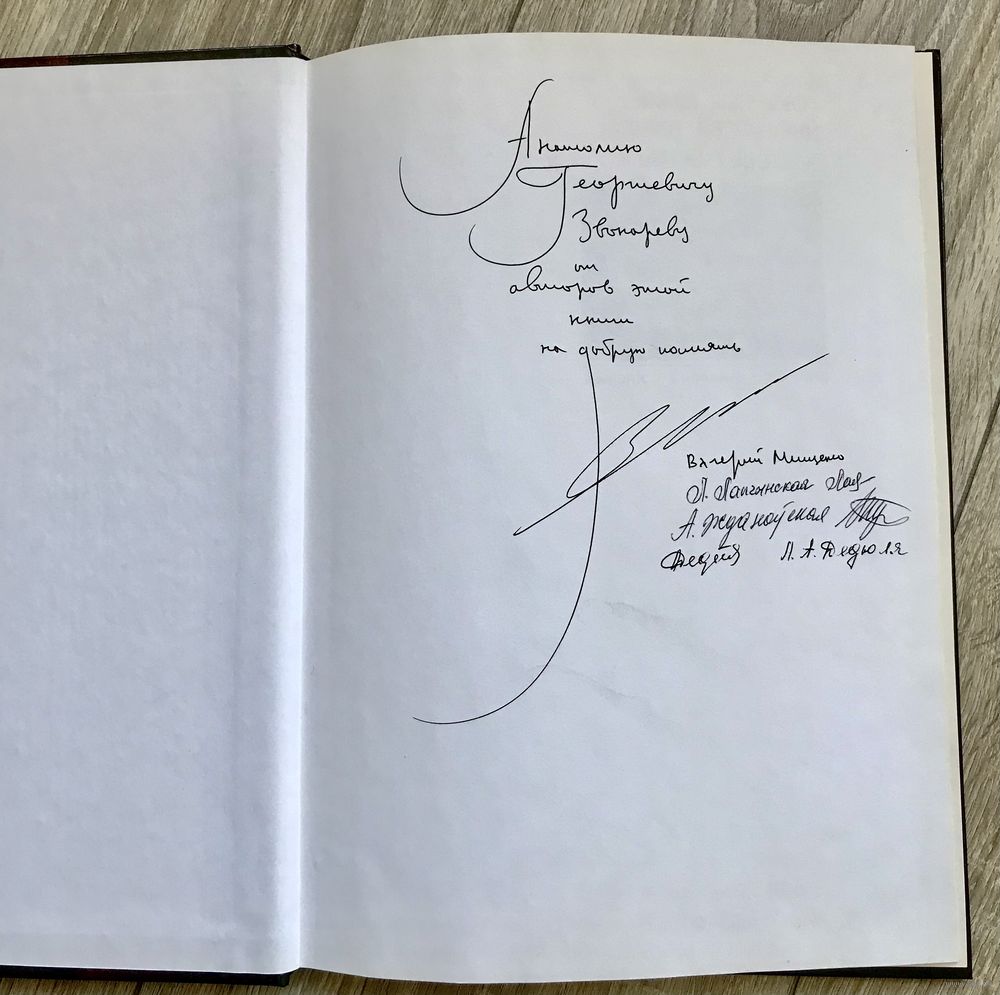 Анатолию
Георгиевичу
Звонареву
от
авторов этой
книги
на добрую память
Валерий Мищенко
Л. Лапчинская
А. Ждановская
Л. А. Дедюля